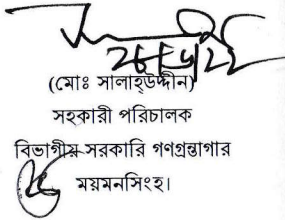 (মোঃ সালাহ্উদ্দীন)
সহকারী পরিচালক
বিভাগীয় সরকারি গণগ্রন্তাগার
ময়মনসিংহ।